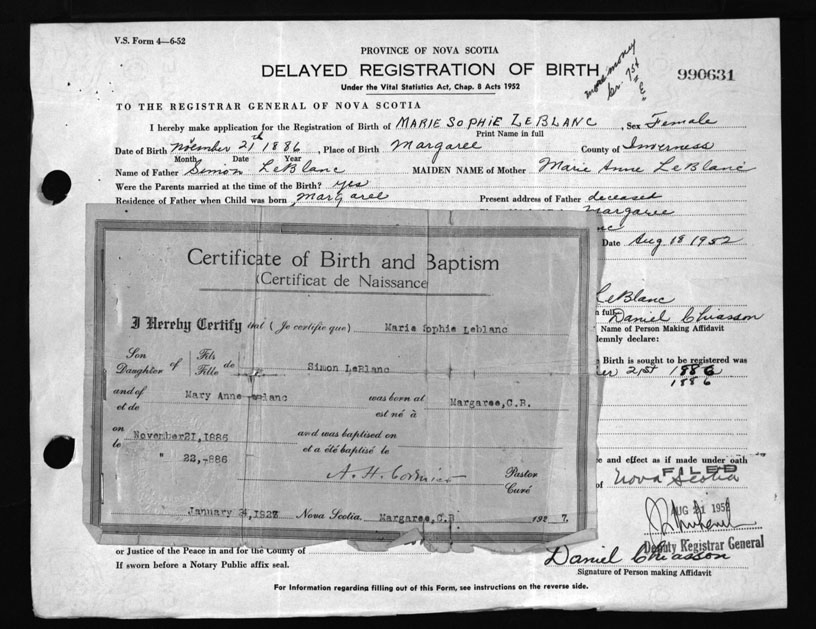 V.S. Form 4—6-52
PROVINCE OF NOVA SCOTIA
DELAYED REGISTRATION OF BIRTH
990631
Under the Vital Statistics Act, Chap. 8 Acts 1952
TO THE REGISTRAR GENERAL OF NOVA SCOTIA
I hereby make application for the Registration of Birth of MARIE SOPHIE LEBLANC, Sex Female
Print Name in full
Date of Birth November 21th 1886, Place of Birth Margaree County of Inverness
Month Date Year
Name of Father Simon LeBlanc MAIDEN NAME of Mother Marie Anne LeBlanc
Were the Parents married at the time of the Birth? yes
Residence of Father when Child was born Margaree Present address of Father deceased
Margaree
Date Aug 18 1952
Certificate of Birth and Baptism
(Certificat de Naissance
LeBlanc
Daniel Chiasson
Name of Person Making Affidavit
I Hereby Certify that (Je certifie que) Marie Sophie Leblanc
lemnly declare:
Son Fils
Daughter of Fille de Simon LeBlanc
Birth is sought to be registered was
21st 1886
1886
and of Mary Anne was born at Margaree, C.B.
et de est né à
on November 21, 1886 and was baptised on
le " 22,-886 et a été baptisé le
e and effect as if made under oath
of Nova Scotia
FILED
A. H. Cormier Pastor
Curé
AUG 21 1952
January 3, 1927 Nova Scotia, Margaree, C.B 192 7.
Deputy Registrar General
or Justice of the Peace in and for the County of
Daniel Chiasson
If sworn before a Notary Public affix seal.
Signature of Person making Affidavit
For Information regarding filling out of this Form, see instructions on the reverse side.